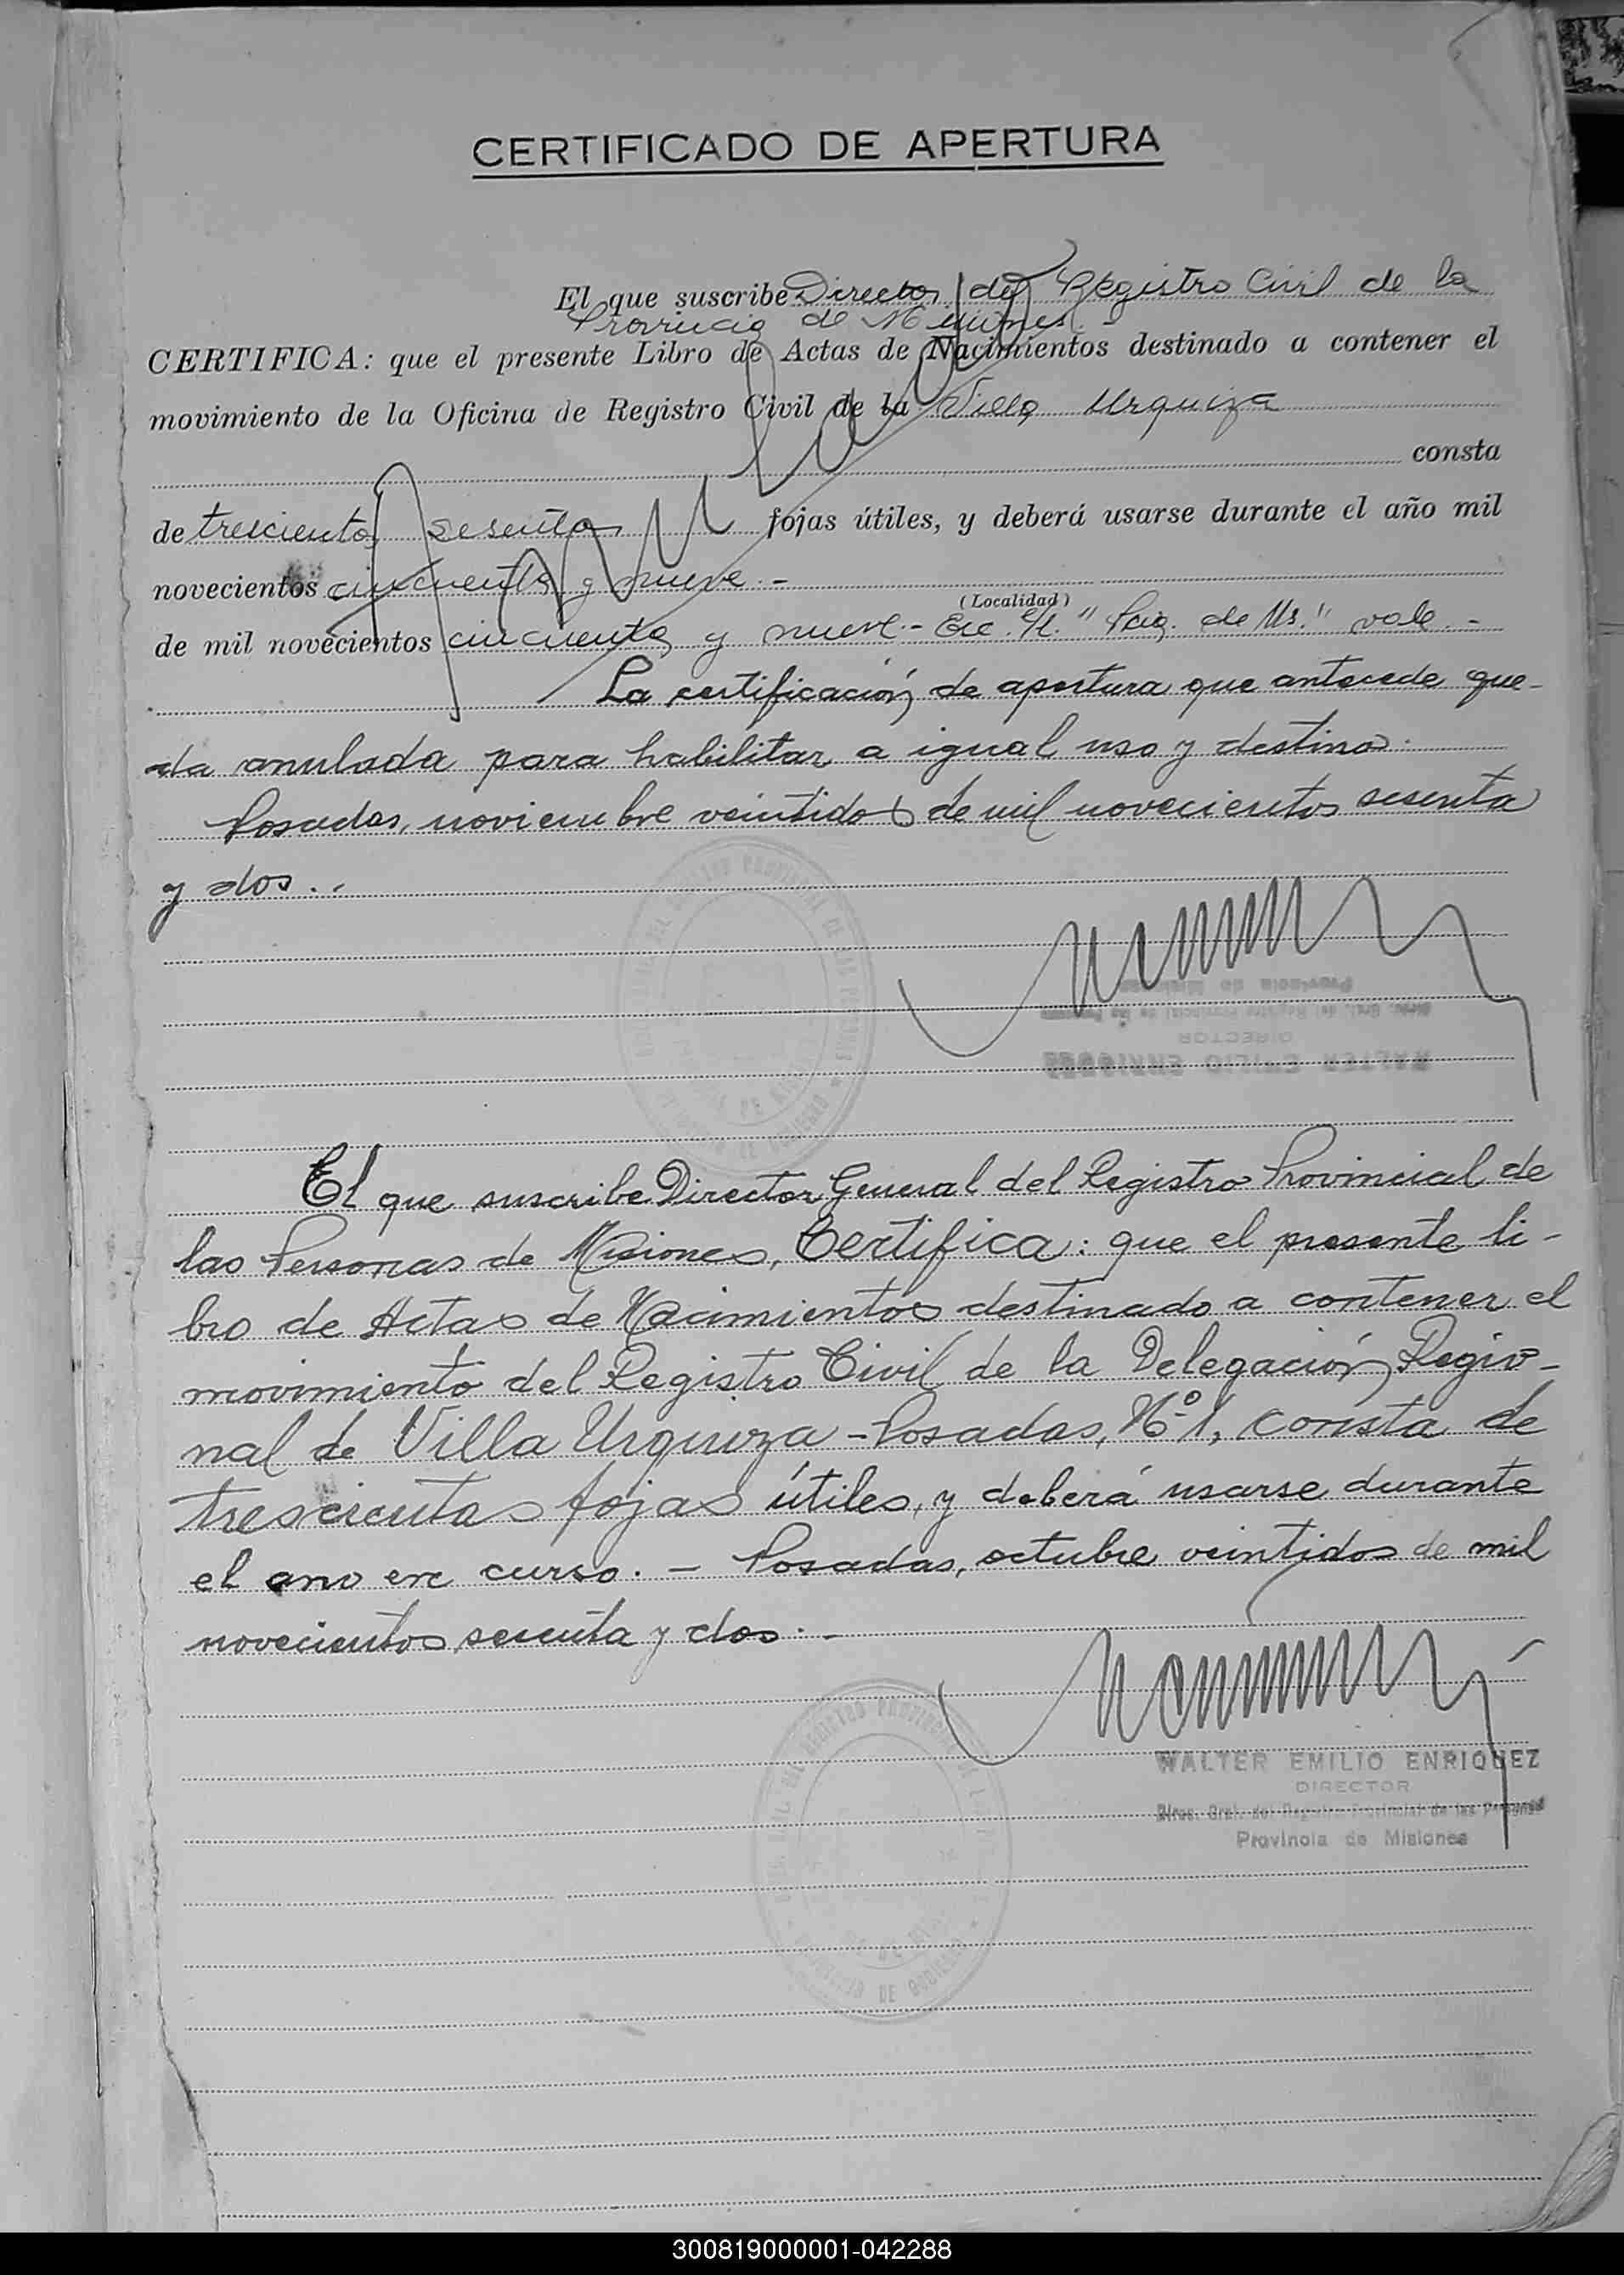 CERTIFICADO DE APERTURA
El que suscribe Director del Registro Civil de la
Provincia de Misiones.-
CERTIFICA: que el presente Libro de Actas de Nacimientos destinado a contener el
movimiento de la Oficina de Registro Civil de la Villa Urquiza
consta
de trescientos sesenta fojas útiles, y deberá usarse durante el año mil
novecientos cincuenta y nueve.-
(Localidad)
de mil novecientos cincuenta y nueve.- de Ms." vale.-
La certificación de apertura que antecede que-
da anulada para habilitar a igual uso y destino.
Posadas, noviembre veintidos de mil novecientos sesenta
y dos.-
WALTER EMILIO ENRIQUEZ
DIRECTOR
Direc. Gral. del Registro Provincial de las Personas
Provincia de Misiones
El que suscribe Director General del Registro Provincial de
las Personas de Misiones, Certifica: que el presente li-
bro de Actas de Nacimientos destinado a contener el
movimiento del Registro Civil de la Delegación Regio-
nal de Villa Urquiza - Posadas, Nº 1, consta de
trescientas fojas útiles, y deberá usarse durante
el ano en curso. - Posadas, octubre veintidos de mil
novecientos sesenta y dos.-
WALTER EMILIO ENRIQUEZ
DIRECTOR
Direc. Gral. del Registro Provincial de las Personas
Provincia de Misiones
300819000001-042288